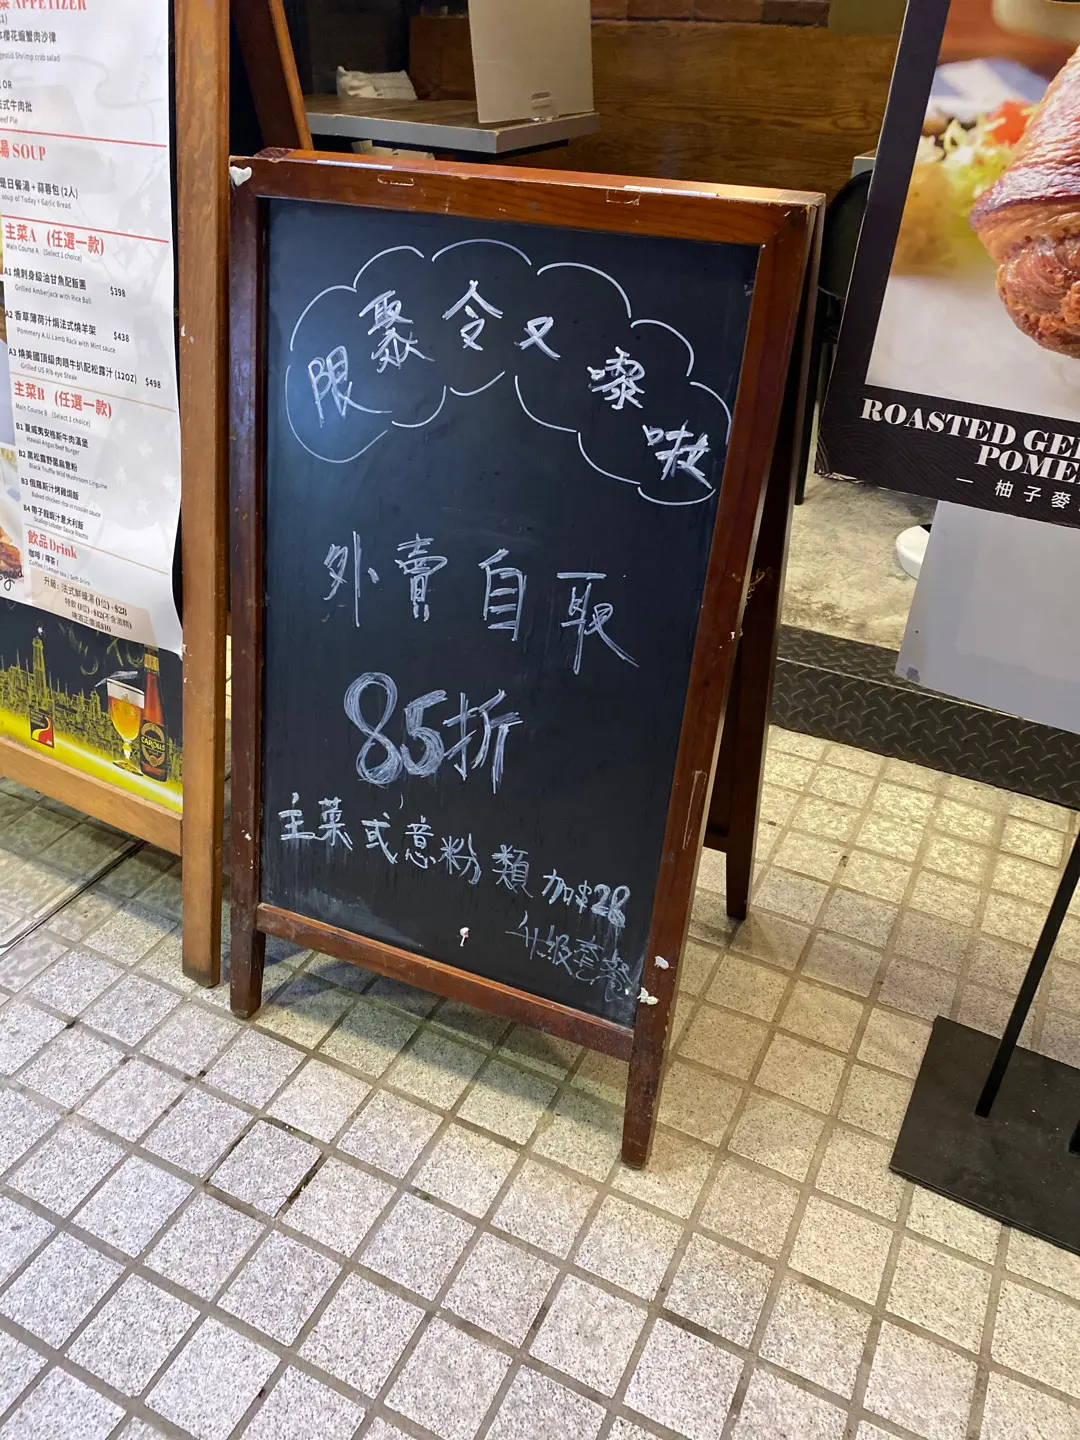 APPETIZER
櫻花蝦蟹肉沙律
Shrimp crab salad
OR
法式牛肉批
Beef Pie
湯 SOUP
是日餐湯 + 蒜蓉包 (2人)
soup of Today + Garlic Bread
主菜A (任選一款)
Main Course A (Select 1 choice)
A1 燒刺身級油甘魚配飯團 $398
Grilled Amberjack with Rice Ball
A2 香草薄荷汁焗法式燒羊架 $438
Pommery A.U Lamb Rack with Mint sauce
A3 燒美國頂級肉眼牛扒配松露汁 (12OZ) $498
Grilled US Rib eye Steak
主菜B (任選一款)
Main Course B (Select 1 choice)
B1 夏威夷安格斯牛肉漢堡
Hawaii Angus Beef Burger
B2 黑松露野菌扁意粉
Black Truffle Wild Mushroom Linguine
B3 俄羅斯汁烤雞焗飯
Baked chicken rice in russian sauce
B4 帶子龍蝦汁意大利飯
Scallop Lobster Sauce Risotto
飲品 Drink
咖啡 / 檸茶 /
Coffee / Lemon tea / Soft Drink
升級: 法式鮮蠔湯 (1位) +$28
特飲 (1位) +$12(不含酒精)
啤酒正價減$10
CAROLUS
限聚令又嚟啦
外賣自取
85折
主菜或意粉類加$28
升級套餐
ROASTED GE
POME
一 柚子麥